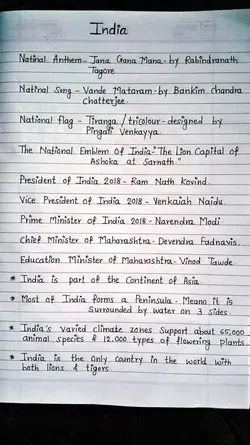 India
Natinal Anthem - Jana Gana Mana - by Rabindranath
Tagore
Natinal Song - Vande Mataram - by Bankim Chandra
Chatterjee.
National flag - Tiranga / tricolour - designed by
Pingali Venkayya.
The National Emblem Of India-"The Lion Capital of
Ashoka at Sarnath."
President of India 2018 - Ram Nath Kovind.
Vice President of India 2018 - Venkaiah Naidu.
Prime Minister of India 2018 - Narendra Modi
Chief Minister of Maharashtra - Devendra Fadnavis.
Education Minister of Maharashtra - Vinod Tawde.
* India is part of the Continent of Asia.
* Most of India forms a Peninsula - Means it is
Surrounded by water on 3 sides.
* India's varied climate zones Support about 65,000
animal species & 12,000 types of flowering plants.
* India is the only country in the world with
both lions & tigers.